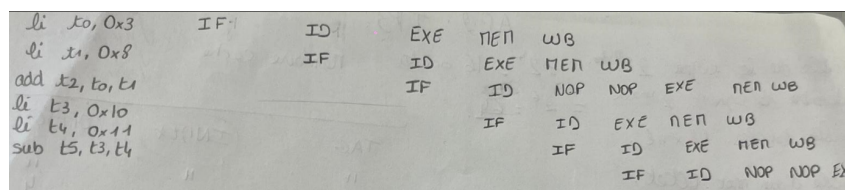 li t0, 0x3 IF ID EXE MEM WB
li t1, 0x8 IF ID EXE MEM WB
add t2, t0, t1 IF ID NOP NOP EXE MEM WB
li t3, 0x10 IF ID EXE MEM WB
li t4, 0x11 IF ID EXE MEM WB
sub t5, t3, t4 IF ID NOP NOP EX